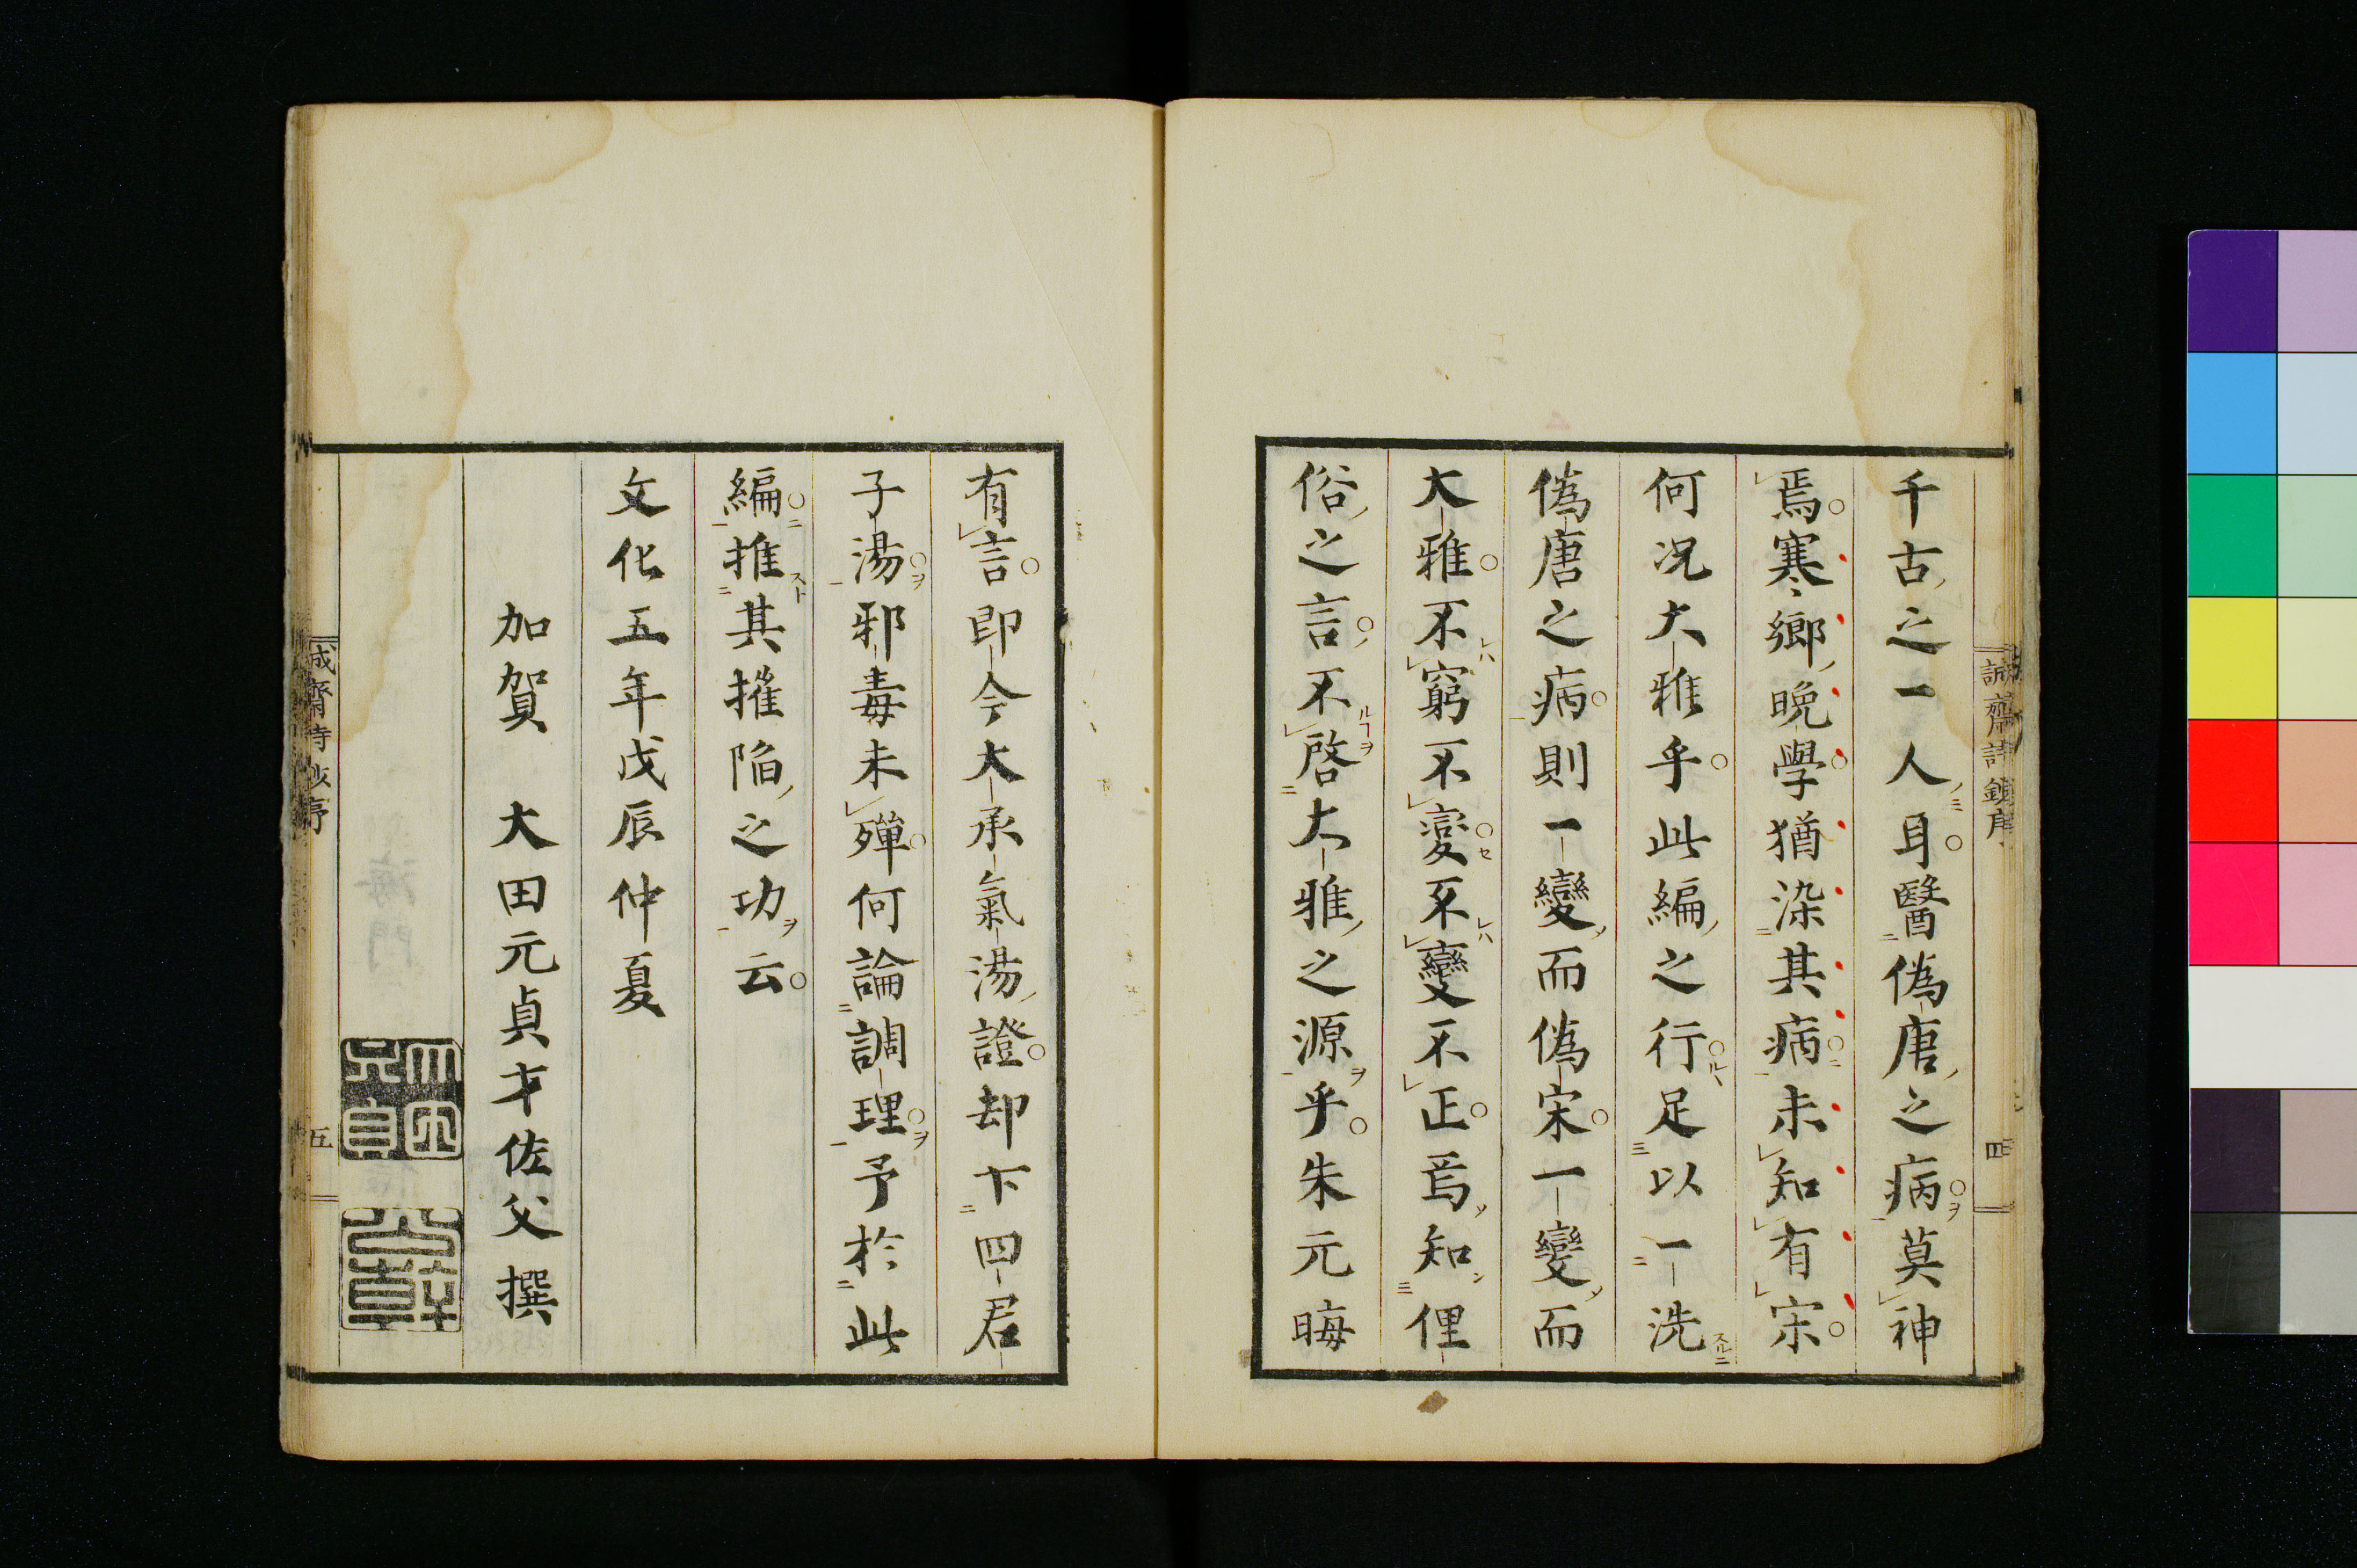 千古之一人耳醫偽唐之病莫神
焉寒鄉晚學猶染其病未知有宋
何況大雅乎此編之行足以一洗
偽唐之病則一變而偽宋一變而
大雅不窮不變不變不正焉知俚
俗之言不啓大雅之源乎朱元晦
有言即今大承氣湯證却下四君
子湯邪毒未殫何論調理予於此
編推其摧陷之功云
文化五年戊辰仲夏
加賀 大田元貞才佐父撰
誠齋詩鈔序
四
誠齋詩鈔序
五